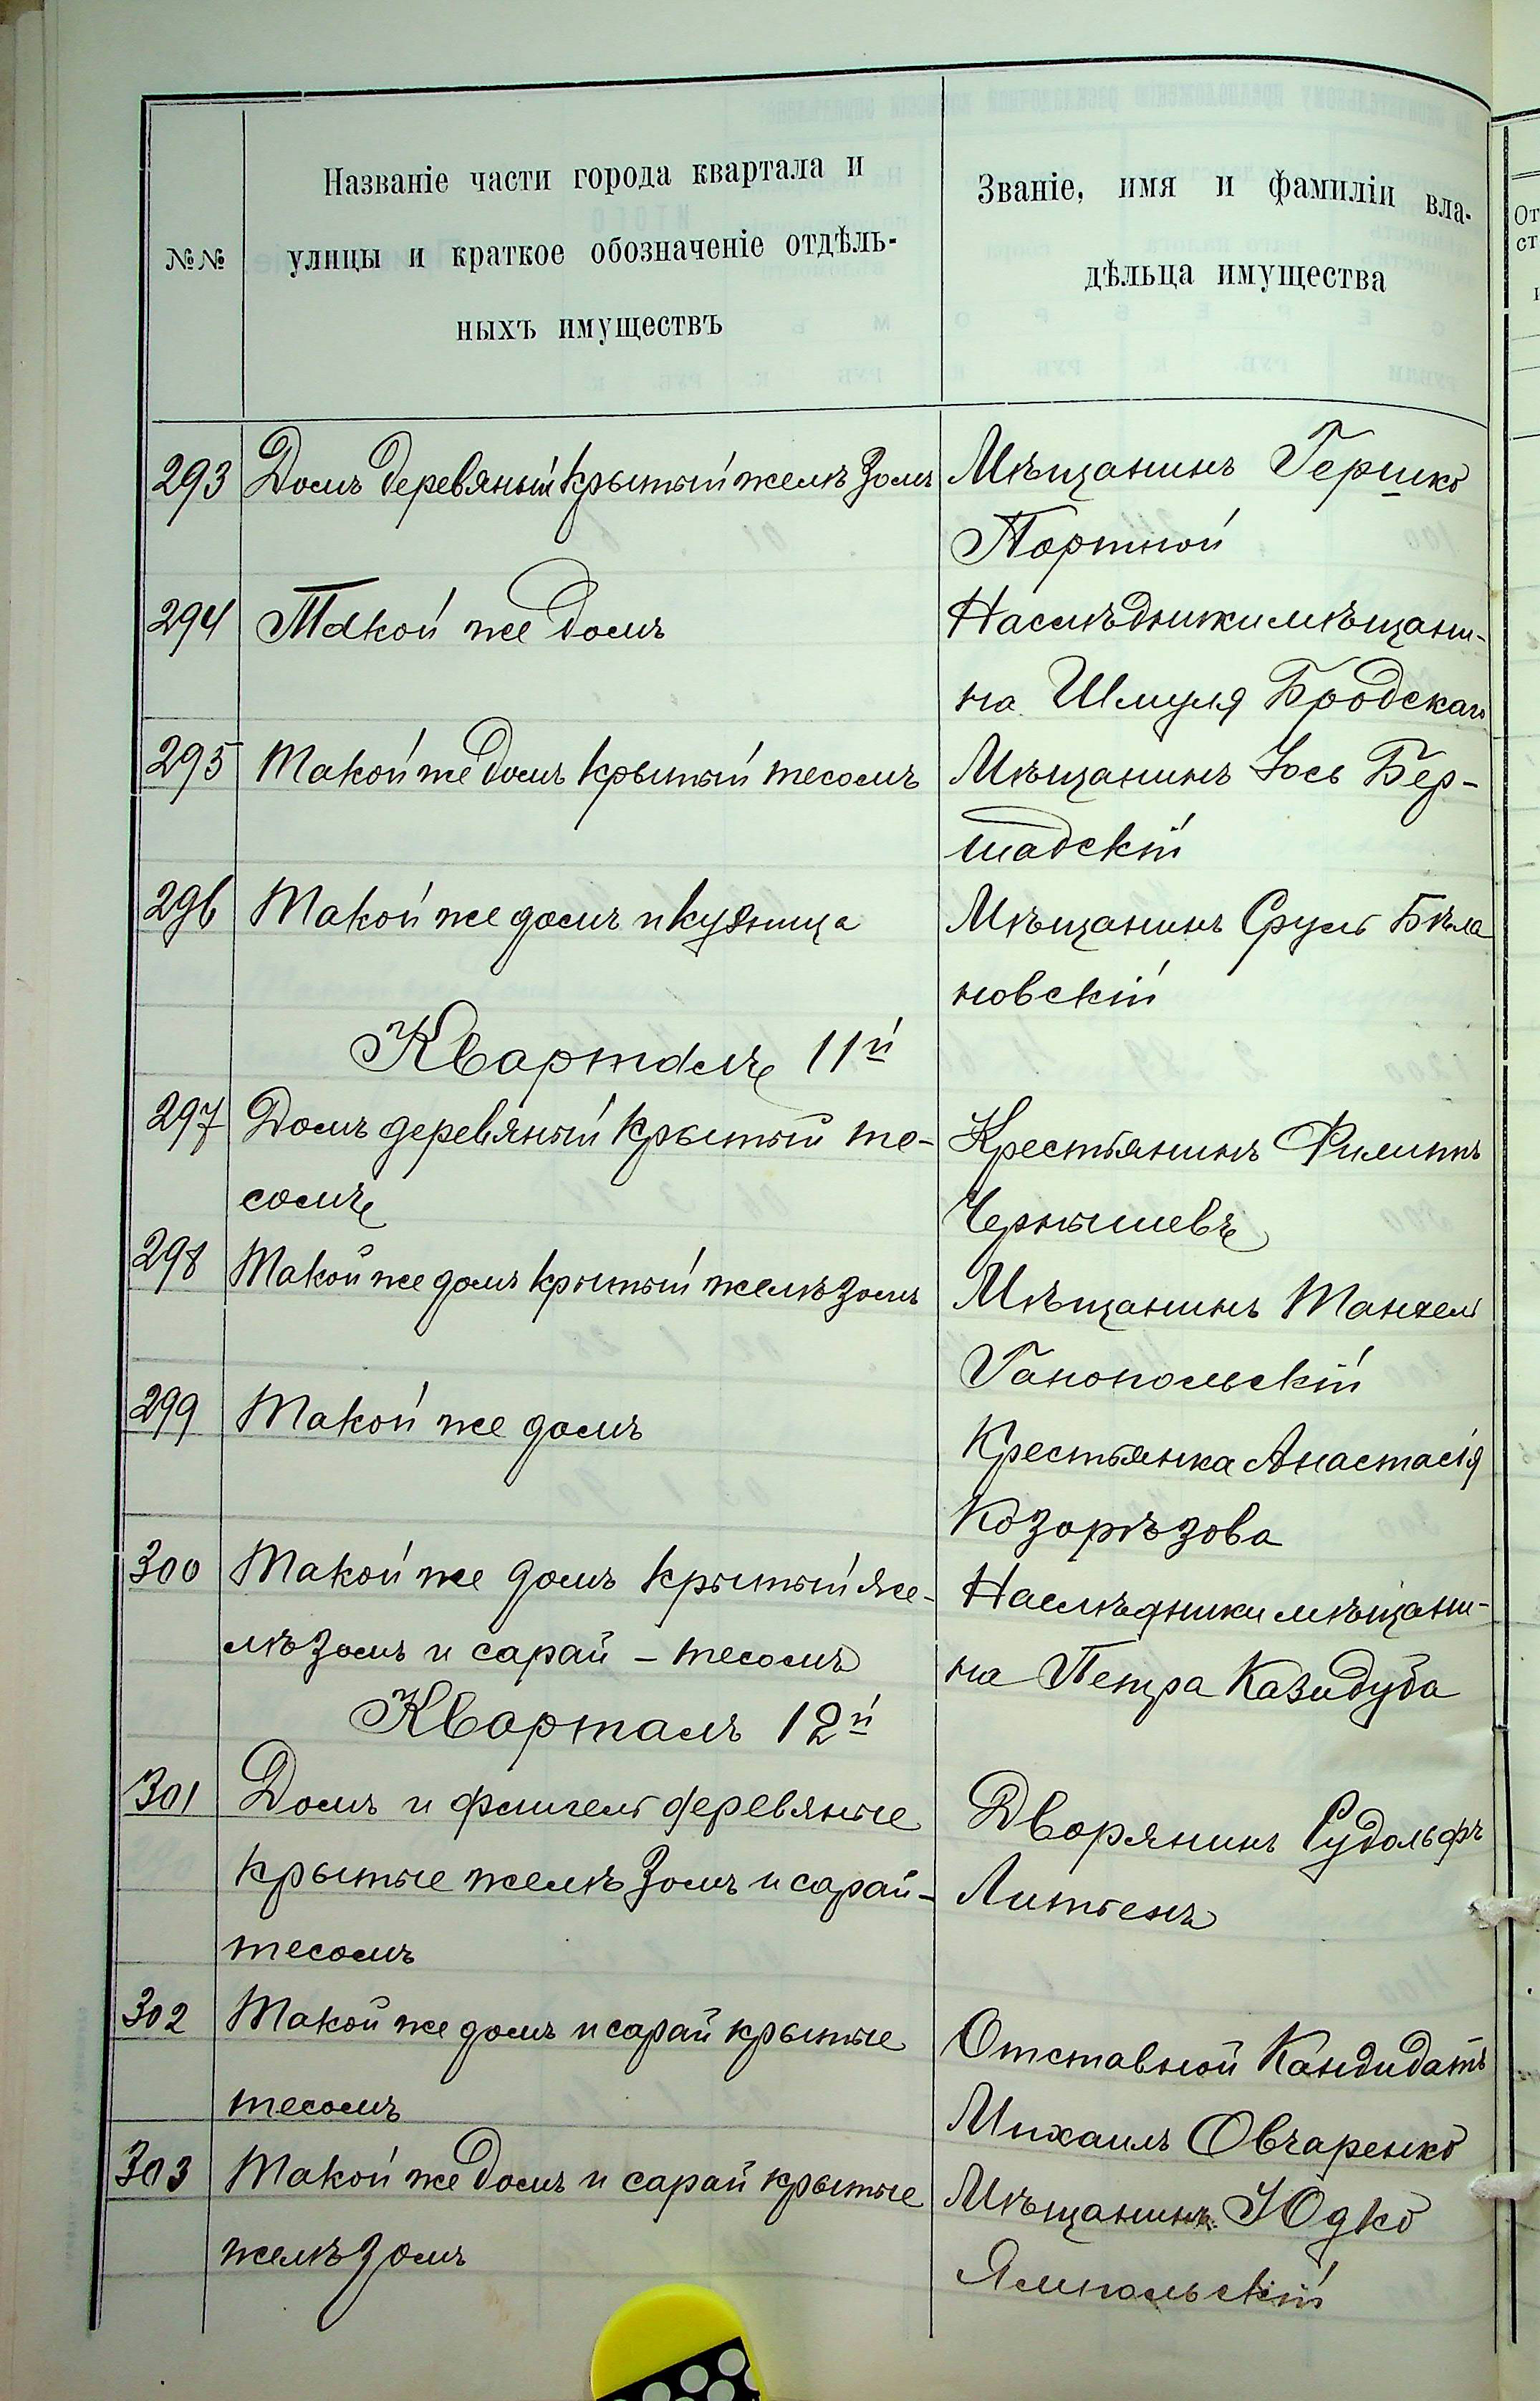 №№
Названіе части города квартала и
улицы и краткое обозначеніе отдѣль-
ныхъ имуществъ
Званіе, имя и фамиліи вла-
дѣльца имущества
293 Домъ деревяный крытый желѣзомъ Мѣщанинъ Гершко
Портной
294 Такой же домъ Наслѣдники мѣщани-
на Шмуля Бродскаго
295 Такой же домъ крытый тесомъ Мѣщанинъ Іось Бер-
шадскій
296 Такой же домъ и кузница Мѣщанинъ Сруль Бѣла
новскій
Кварталъ 11й
297 Домъ деревяный крытый те- Крестьянинъ Филиппъ
сомъ Чернышевъ
298 Такой же домъ крытый желѣзомъ Мѣщанинъ Танхель
Ганопольскій
299 Такой же домъ Крестьянка Анастасія
Козорѣзова
300 Такой же домъ крытый же- Наслѣдники мѣщани-
лѣзомъ и сарай - тесомъ на Петра Казидуба
Кварталъ 12й
301 Домъ и флигель деревяные Дворянинъ Рудольфъ
крытые желѣзомъ и сарай- Литьенъ
тесомъ
302 Такой же домъ и сарай крытые Отставной Кандидатъ
тесомъ Михаилъ Овчаренко
303 Такой же домъ и сарай крытые Мѣщанинъ Юдко
желѣзомъ Ямпольскій
От
ст